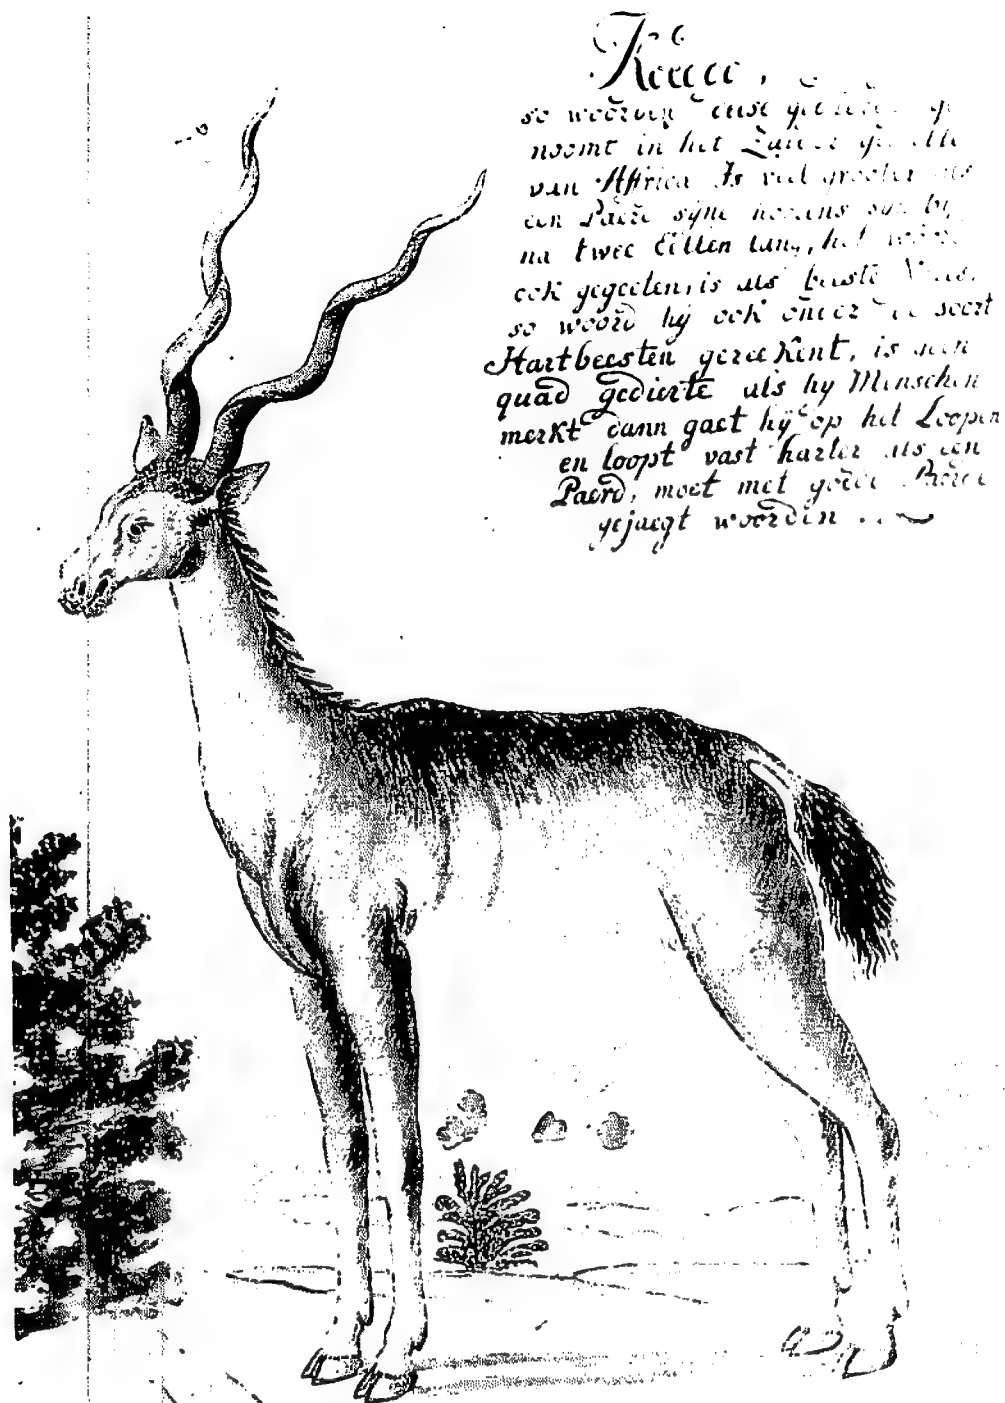 so woorden dese
noomt in het
van Affrica Is veel grooter als
een Paerd syne hoorens syn by
na twee Ellen lang, het woord
ook gegeeten, is als beeste Vleis,
so woord hy ook onder de soort
Hartbeesten gereekent, is geen
quad gedierte als hy Minschen
merkt dann gaet hy op het Loopen
en loopt vast harter als een
Paerd, moet met goede Paerde
gejaegt woorden